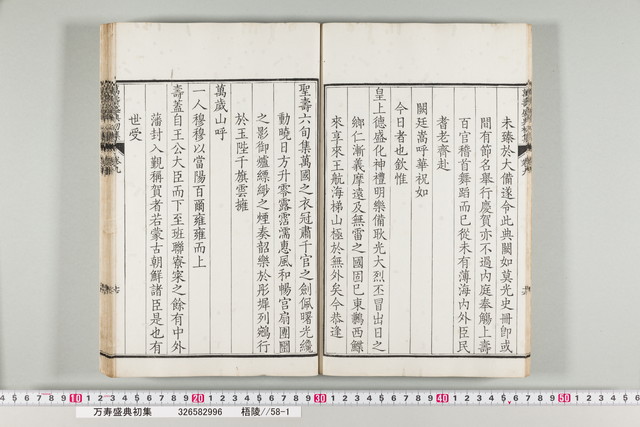 未臻於大備遂令此典闕如莫光史冊即或
間有節名舉行慶賀亦不過內庭奉觴上壽
百官稽首舞蹈而已從未有薄海內外臣民
耆老齊赴
闕廷嵩呼華祝如
今日者也欽惟
皇上德盛化神禮明樂備耿光大烈丕冒出日之
鄉仁漸義摩遠及無雷之國固已東鶼西鰈
來享來王航海梯山極於無外矣今恭逢
聖壽六旬集萬國之衣冠肅千官之劍佩曙光纔
動曉日方升零露霑濡惠風和暢宮扇團圞
之影御爐縹緲之煙奏韶樂於彤墀列鵷行
於玉陛千旗雲擁
萬歲山呼
一人穆穆以當陽百爾雍雍而上
壽蓋自王公大臣而下至班聯寮寀之餘有中外
藩封入覲稱賀者若蒙古朝鮮諸臣是也有
世受
10 20 30 40 50
万寿盛典初集 326582996 梧陵//58-1